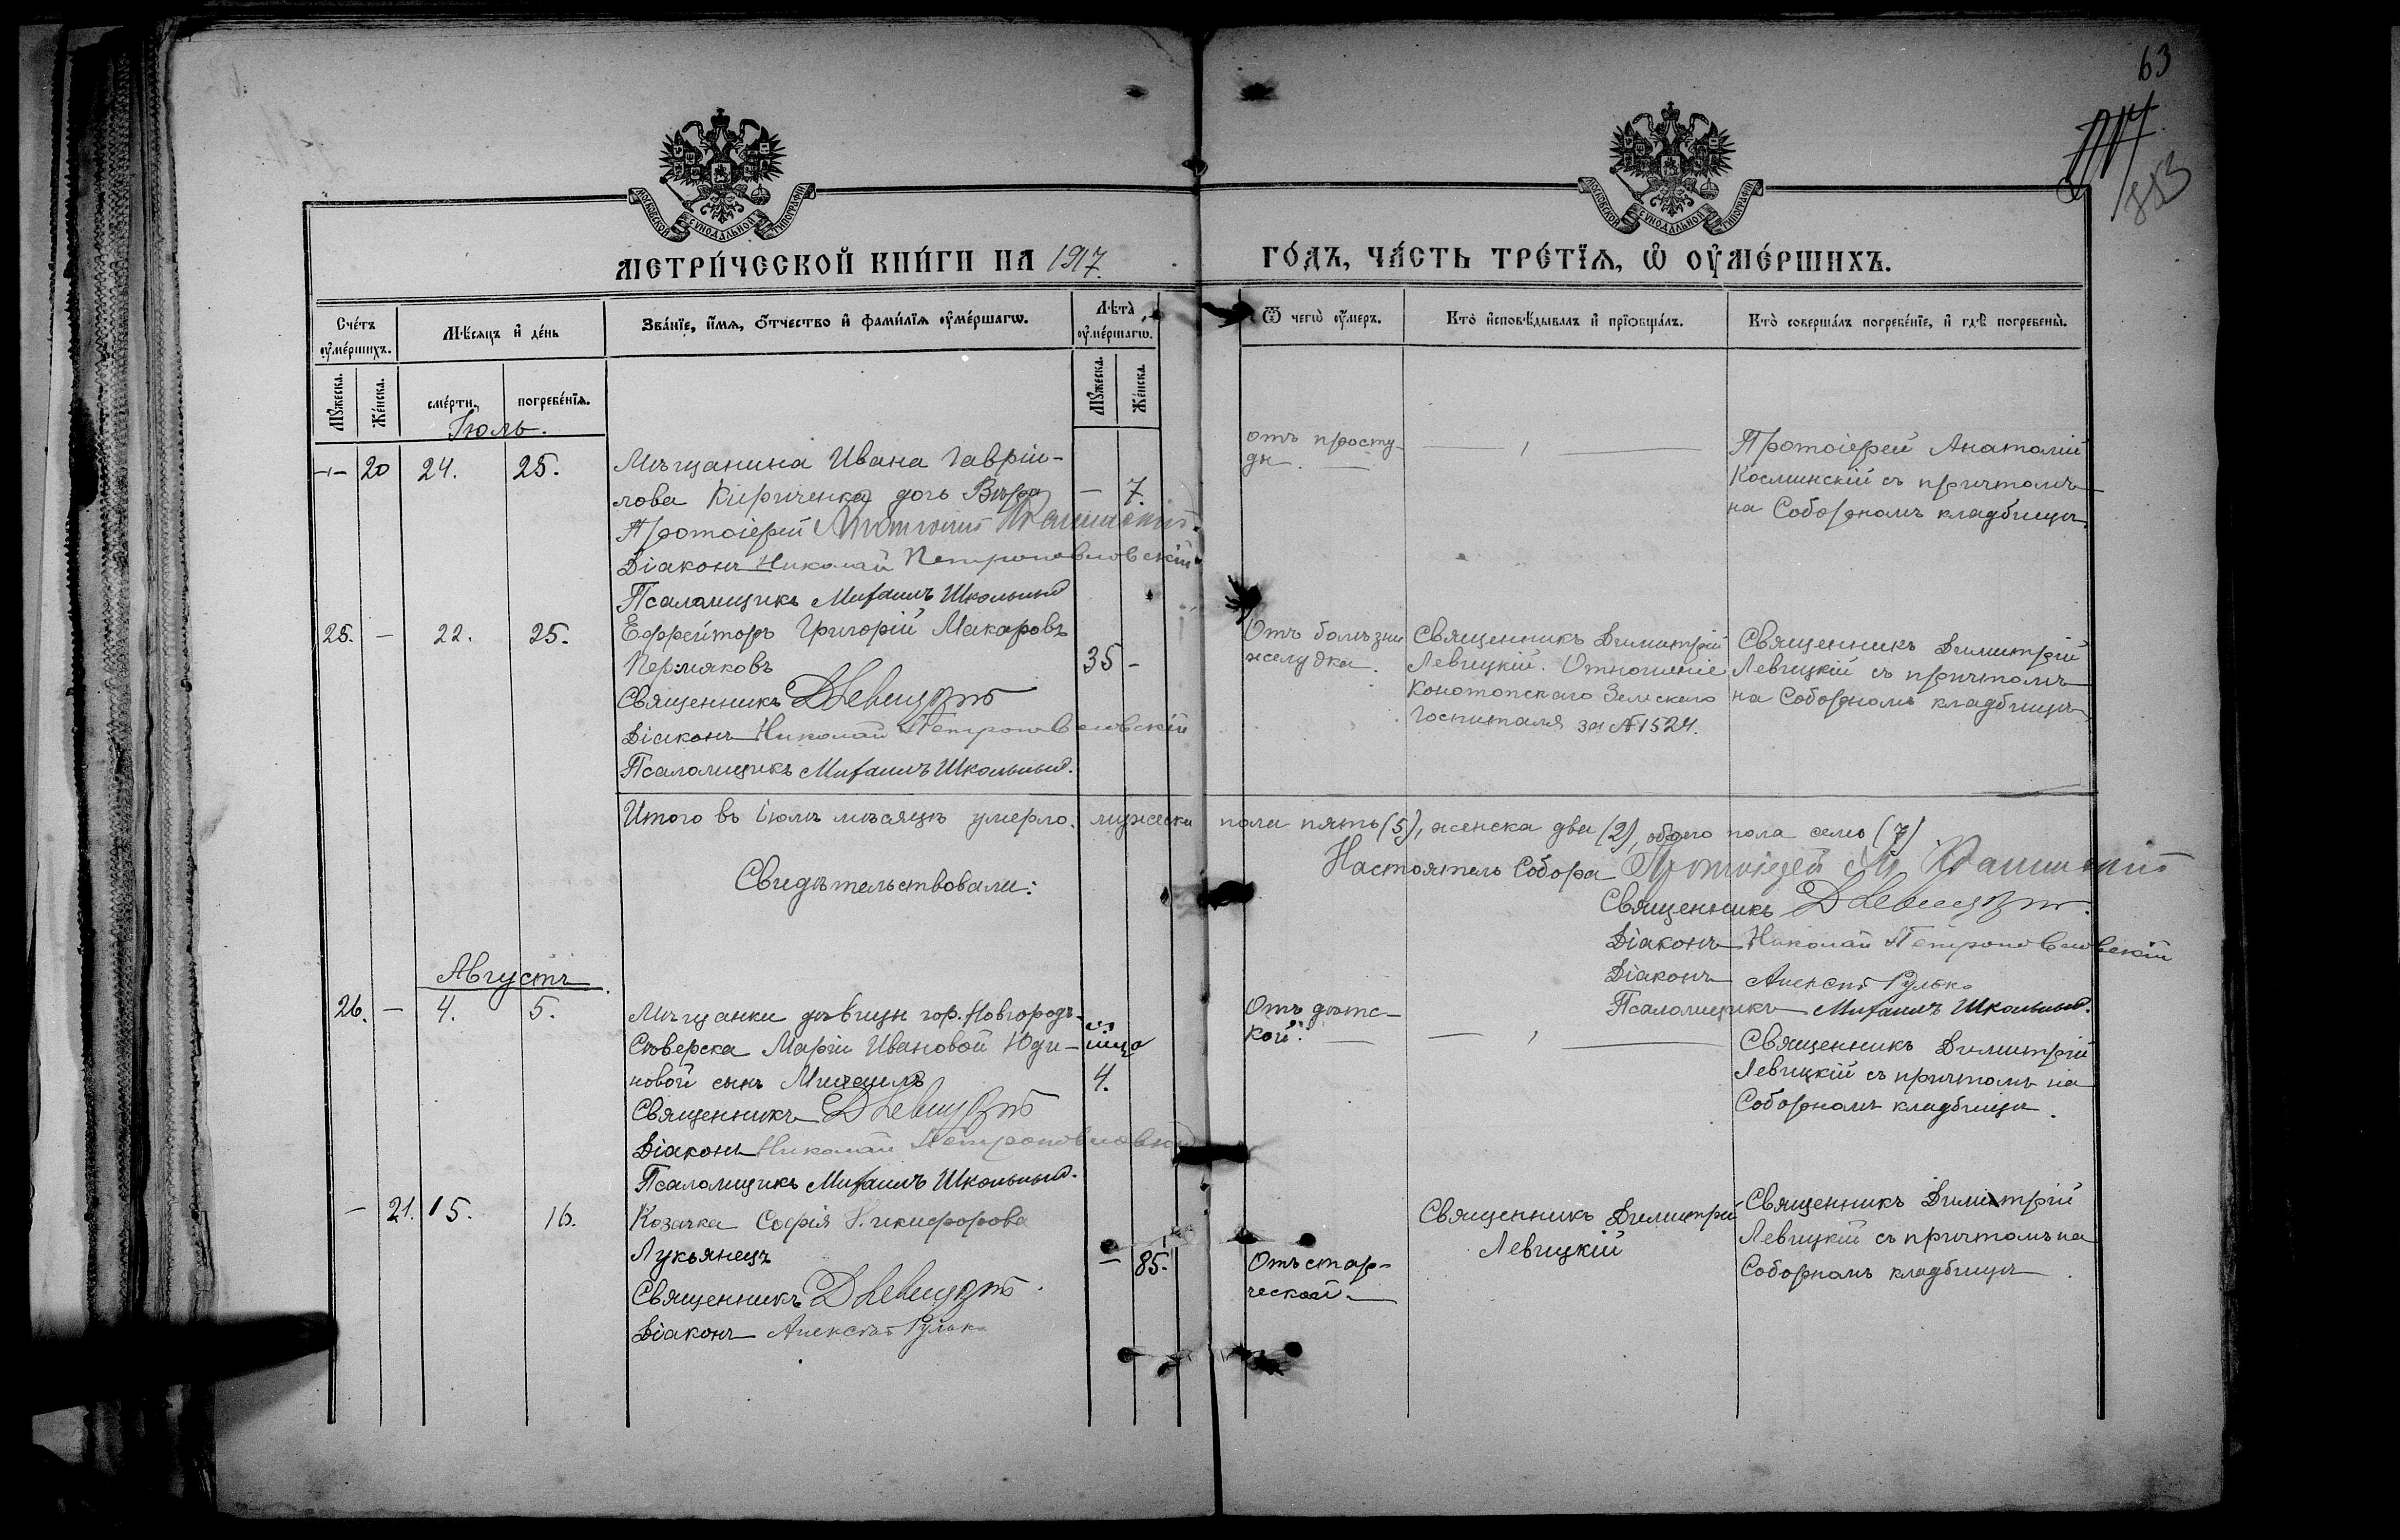 63
183
МОСКОВСКОЙ СУНОДАЛЬНОЙ ТИПОГРАФІИ
МОСКОВСКОЙ СУНОДАЛЬНОЙ ТИПОГРАФІИ
МЕТРИ́ЧЕСКОЙ КНИ́ГИ НА 1917.
ГО́ДЪ, ЧА́СТЬ ТРЕ́ТЇѦ, Ѽ ОУ҆МЕ́РШИХЪ.
Сче́тъ оу҆ме́ршихъ.
Мѣ́сѧцъ и҆ де́нь
Зва́нїе, и҆́мѧ, ѻ҆́тчество и҆ фами́лїѧ оу҆ме́ршагѡ.
Лѣ́та оу҆ме́ршагѡ.
Ѿ чегѡ̀ оу҆́меръ.
Кто̀ и҆сповѣ́дывалъ и҆ прїѡбща́лъ.
Кто̀ соверша́лъ погребе́нїе, и҆ гдѣ̀ погребены̀.
Мꙋ́жеска.
Же́нска.
сме́рти,
погребе́нїѧ.
Мꙋ́жеска.
Же́нска.
Іюль.
— 20 24. 25.
Мѣщанина Ивана Гавріи-
лова Кириченка дочь Вѣра — 7.
Протоіерей
Діаконъ Николай Петропавловскій
Псаломщикъ Михаилъ Школьный
отъ просту-
ды. —
Протоіерей Анатолій
съ причтомъ
на Соборномъ кладбищѣ.
25. — 22. 25.
Ефрейторъ Григорій Макаровъ
Пермяковъ 35 -
Священникъ ДЛевицкій
Діаконъ Николай Петропавловскій
Псаломщикъ Михаилъ Школьный.
Отъ болѣзни
желудка.
Священникъ Димитрій
Левицкій. Отношеніе
Конотопскаго Земскаго
Госпиталя за №1524.
Священникъ Димитрій
Левицкій съ причтомъ
на Соборномъ кладбищѣ
Итого въ іюлѣ мѣсяцѣ умерло: мужеска пола пять (5), женска два (2), обоего пола семь (7)
Свидѣтельствовали:
Настоятель Собора Протоіерей
Священникъ ДЛевицкій.
Діаконъ Николай Петропавловскій
Діаконъ Алексѣй
Псаломщикъ Михаилъ Школьный.
Августъ.
26. — 4. 5.
Мѣщанки дѣвицы гор. Новгородъ-
Сѣверска Маріи Ивановой Юди-
новой сынъ Михаилъ 4.
Священникъ ДЛевицкій
Діаконъ Николай Петропавловскій
Псаломщикъ Михаилъ Школьный.
Отъ дѣтс-
кой. —
Священникъ Димитрій
Левицкій съ причтомъ на
Соборномъ кладбищѣ.
— 21. 15. 16.
Козачка Софія Никифорова
Лукьянецъ — 85.
Священникъ ДЛевицкій.
Діаконъ Алексѣй
Отъ стар-
ческой. —
Священникъ Димитрій
Левицкій
Священникъ Димитрій
Левицкій съ причтомъ на
Соборномъ кладбищѣ.